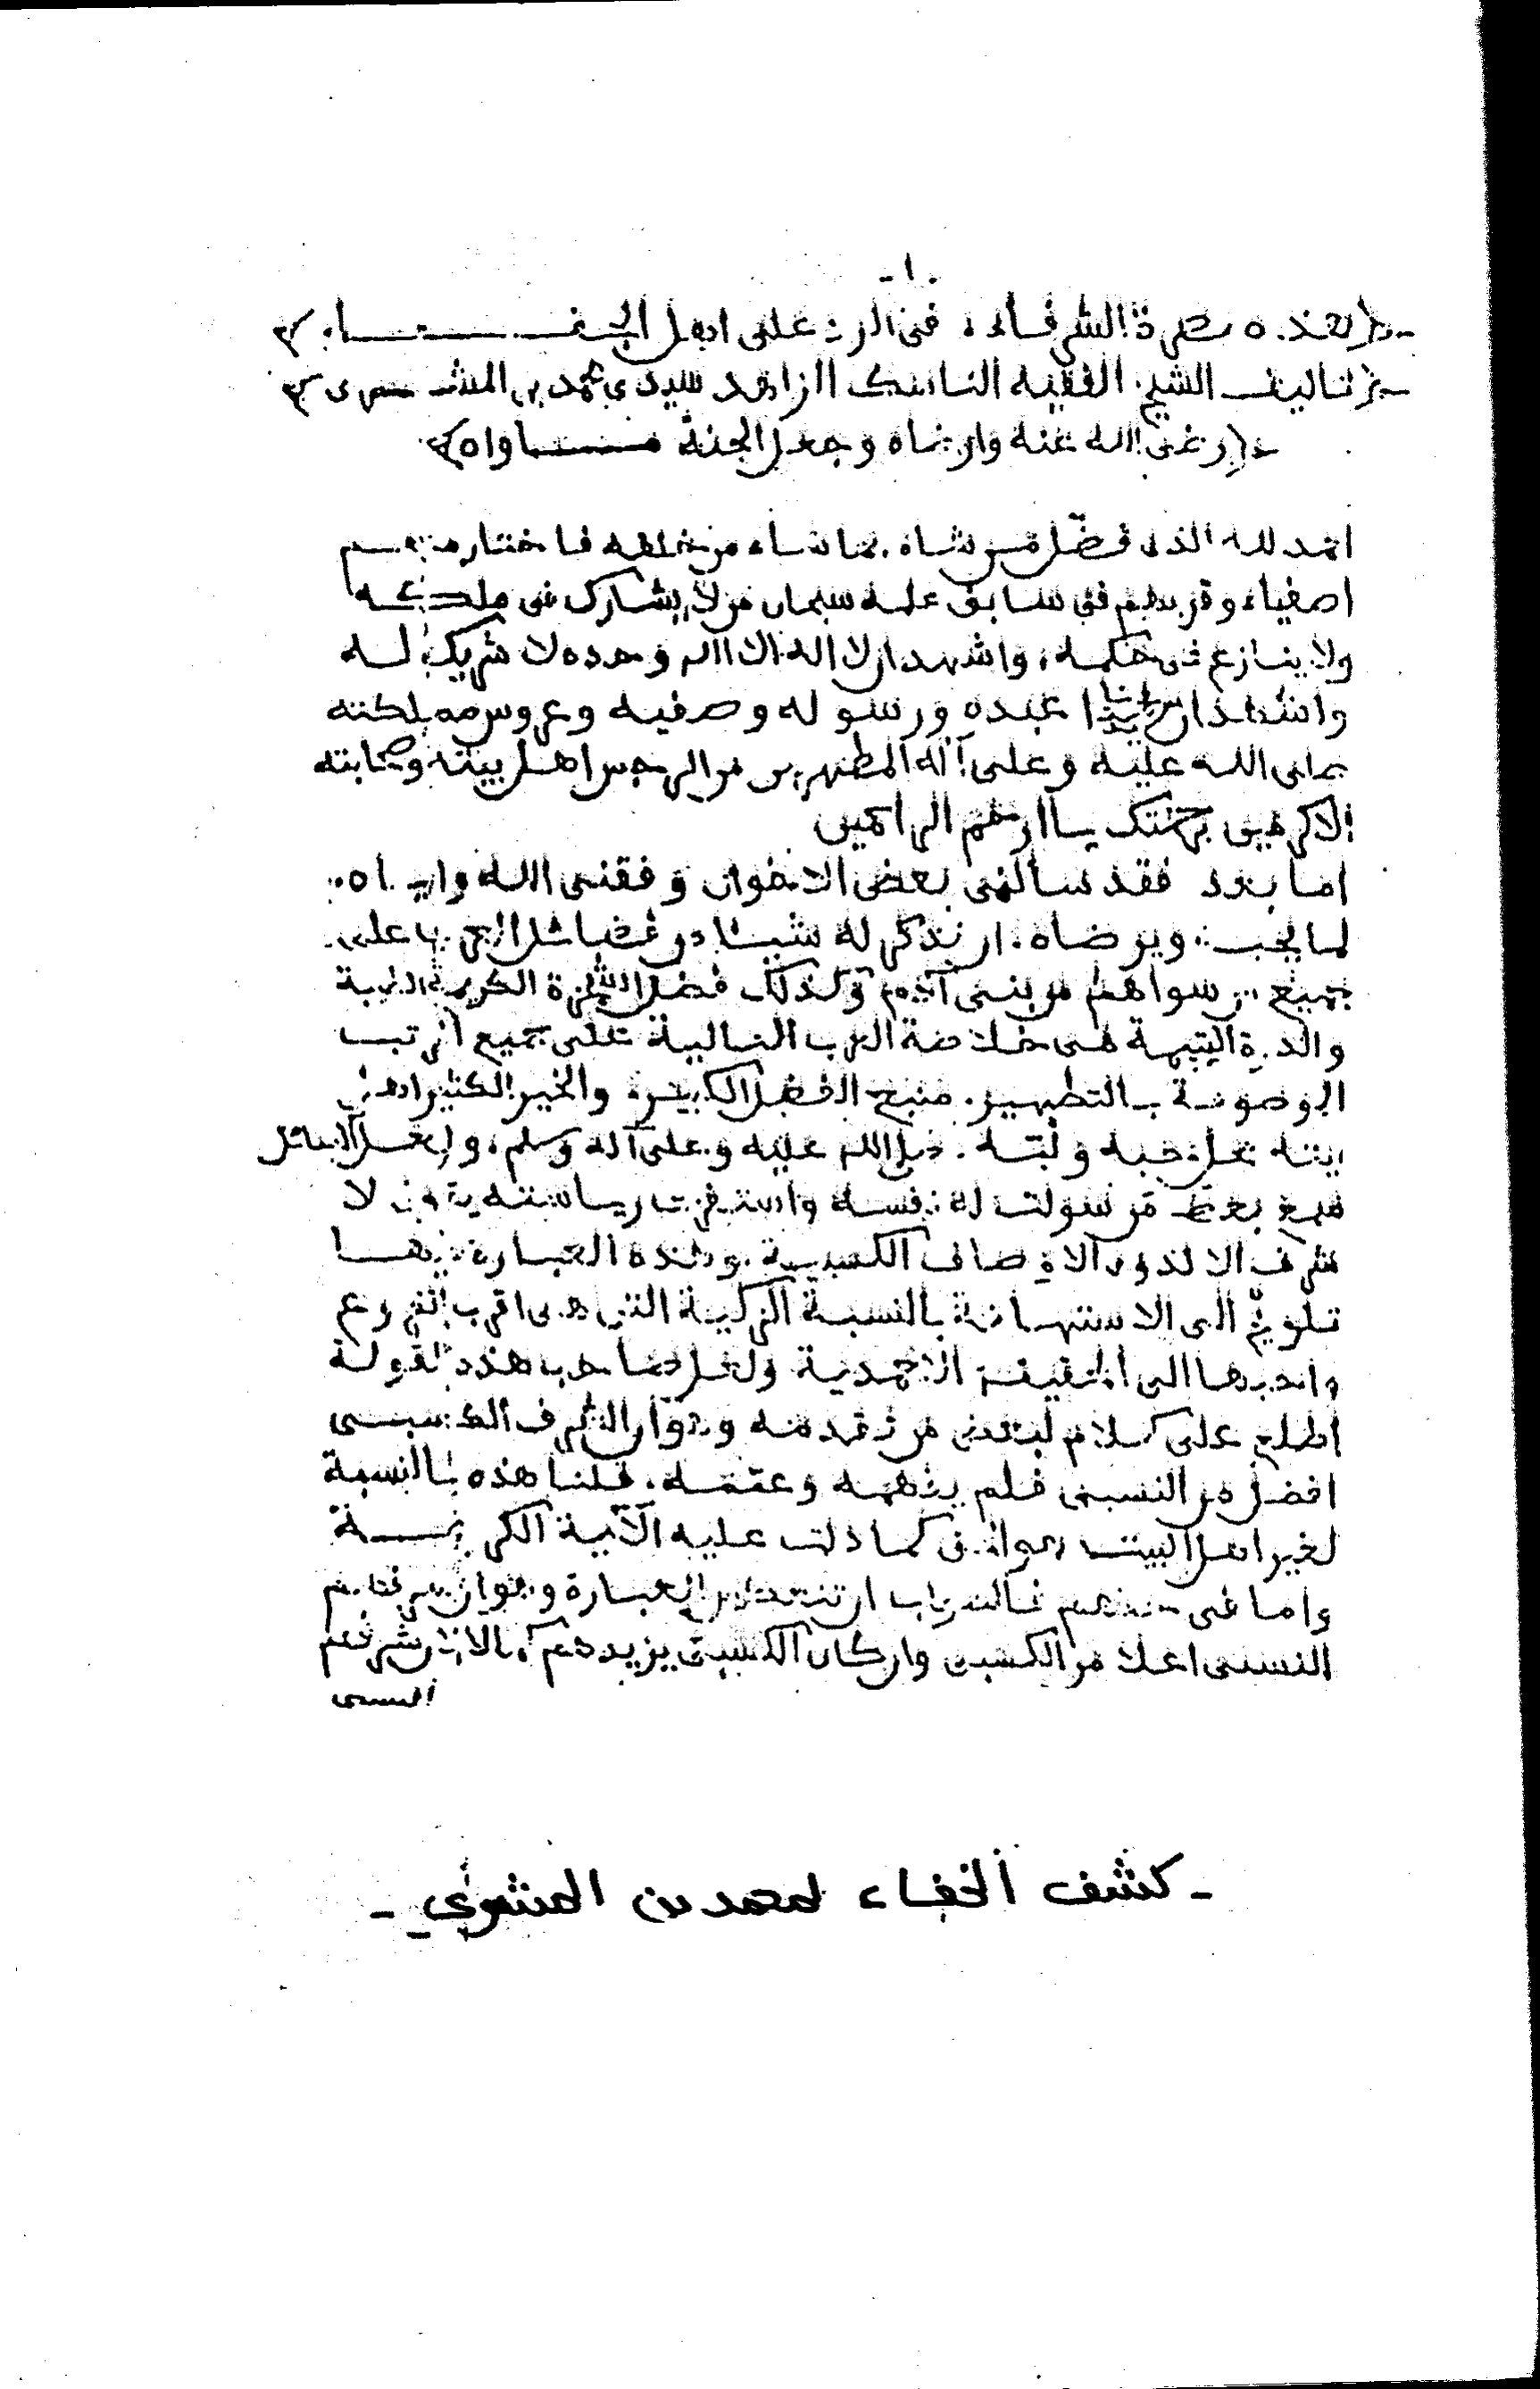 -١-
هذه نصرة الشرفاء في الرد على اهل الجفاء
تاليف الشيخ الفقيه الناسك الزاهد سيدي محمد بن المشري
رضي الله عنه وارضاه وجعل الجنة مأواه
الحمد لله الذي فضّل من شاء بما شاء من خلقه فاختار منهم
اصفياء وقربهم في سابق علمه سبحان من لا يشارك في ملكه
ولا ينازع في حكمه، واشهد ان لا اله الا الله وحده لا شريك له
واشهد ان سيدنا عبده ورسوله وصفيه وعروس مملكته
صلى الله عليه وعلى آله المطهرين من الرجس اهل بيته وصحابته
الاكرمين برحمتك يا ارحم الراحمين
اما بعد فقد سألني بعض الاخوان وفقني الله واياه
لما يحبه ويرضاه، ان نذكر له شيئا من فضائل العرب على
جميع من سواهم من بني آدم وكذلك فضل الكريمة
والدرة اليتيمة هي خلاصة العرب على جميع الرتب
بالتطهير. منبع الفضل الكبير، والخير الكثير اهل
بيته صلى الله عليه وعلى آله وسلم، ولعل السائل
سمع بعض من سولت له نفسه رياسته لا
شرف الا لذوي الاوصاف الكسبية، وهذه العبارة فيها
تلويح الى الاستهانة بالنسبة الزكية التي هي اقرب الفروع
الى الحقيقة الاحمدية ولعل صاحب هذه القولة
اطلع على كلام لبعض من تقدمه وهو ان الشرف الكسبي
افضل من النسبي فلم يفهمه وعممه، قلنا هذه بالنسبة
لغير اهل البيت كما دلت عليه الآية الكريمة
واما في حقهم فالصواب ان العبارة وهو ان شرفهم
النسبي اعلا من الكسبي وان كان الكسبي يزيدهم الا ان شرفهم
النسبي
- كشف الخفاء لمحمد بن المشري -